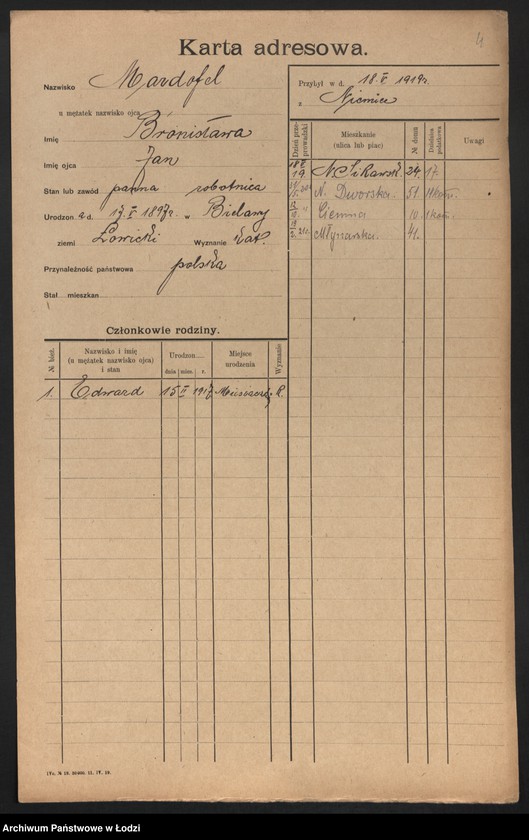 4
Karta adresowa.
Nazwisko Mardofel
u mężatek nazwisko ojca
Imię Bronisława
Imię ojca Jan
Stan lub zawód panna robotnica
Urodzon a d. 17. X 1897 r. w Bielawy
ziemi Łowicki Wyznanie kat.
Przynależność państwowa polska
Stał mieszkan
Przybył w d. 18. V 1919 r.
z Niemiec
Dzień przeprowadzki
Mieszkanie
(ulica lub plac)
№ domu
Dzielnica podatkowa
Uwagi
18 V 19. N. Sikawsk. 24. 17.
N. Dworska. 51.
Ciemna 10.
Młynarska. 41.
Członkowie rodziny.
№ bież.
Nazwisko i imię
(u mężatek nazwisko ojca)
i stan
Urodzon
dnia mies. r.
Miejsce
urodzenia
Wyznanie
1. Edward 15 1917 R.
Archiwum Państwowe w Łodzi